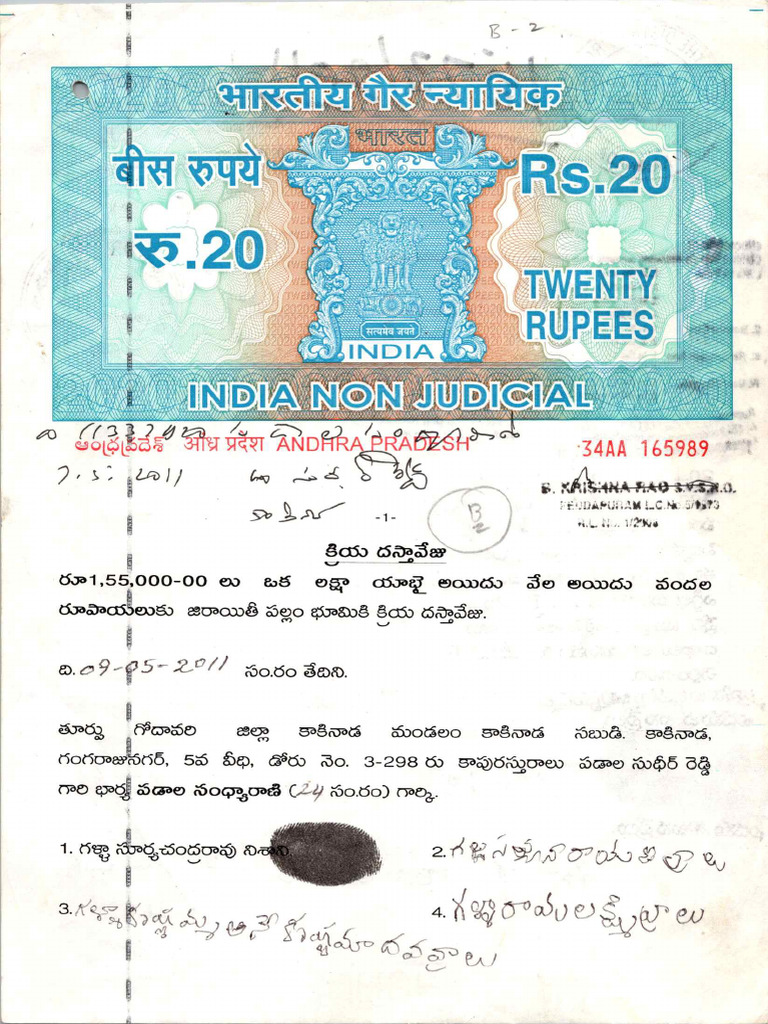 B - 2
भारतीय गैर न्यायिक
भारत
बीस रुपये
Rs.20
रु.20
TWENTY
RUPEES
सत्यमेव जयते
INDIA
INDIA NON JUDICIAL
ఆంధ్రప్రదేశ్ आंध्र प्रदेश ANDHRA PRADESH 34AA 165989
2011
-1-
B
2
క్రియ దస్తావేజు
రూ1,55,000-00 లు ఒక లక్షా యాభై అయిదు వేల అయిదు వందల
రూపాయలుకు జిరాయితీ పల్లం భూమికి క్రియ దస్తావేజు.
ది. 09-05-2011 సం.రం తేదిని.
తూర్పు గోదావరి జిల్లా కాకినాడ మండలం కాకినాడ సబుడి. కాకినాడ,
గంగరాజునగర్, 5వ వీధి, డోరు నెం. 3-298 రు కాపురస్తురాలు పడాల సుధీర్ రెడ్డి
గారి భార్య పడాల సంధ్యారాణి (24 సం.రం) గార్కి.
1. గళ్ళా సూర్యచంద్రరావు నిశాని
2.
3.
4. గళ్ళా రామలక్ష్మి వ్రాలు